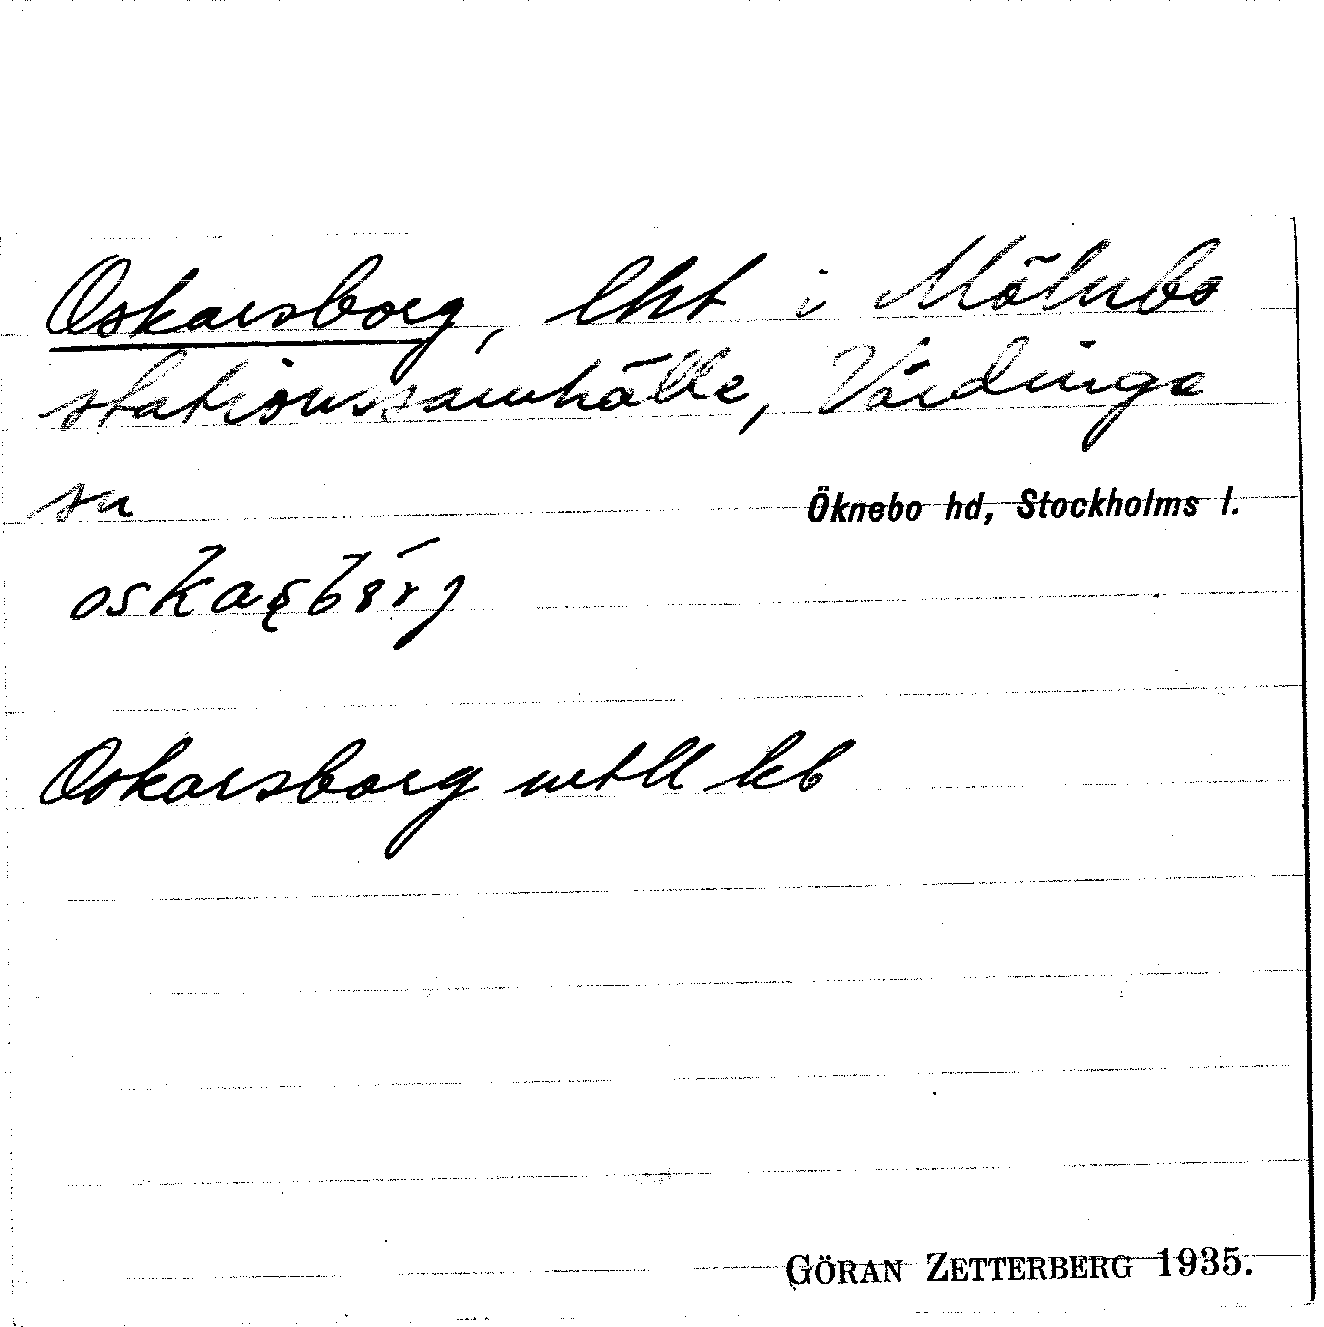 Oskarsborg, lht i Mölnbo
stationssamhälle, Vårdinga
sn
Öknebo hd, Stockholms l.
Oskarsborg mtll kb
GÖRAN ZETTERBERG 1935.